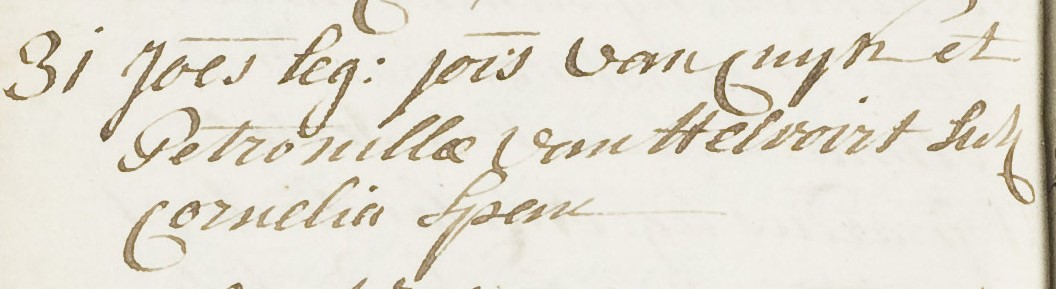 31 Joēs leg: joīs van cuyk et
Petronillæ van Helvoirt Sus
cornelia Speru